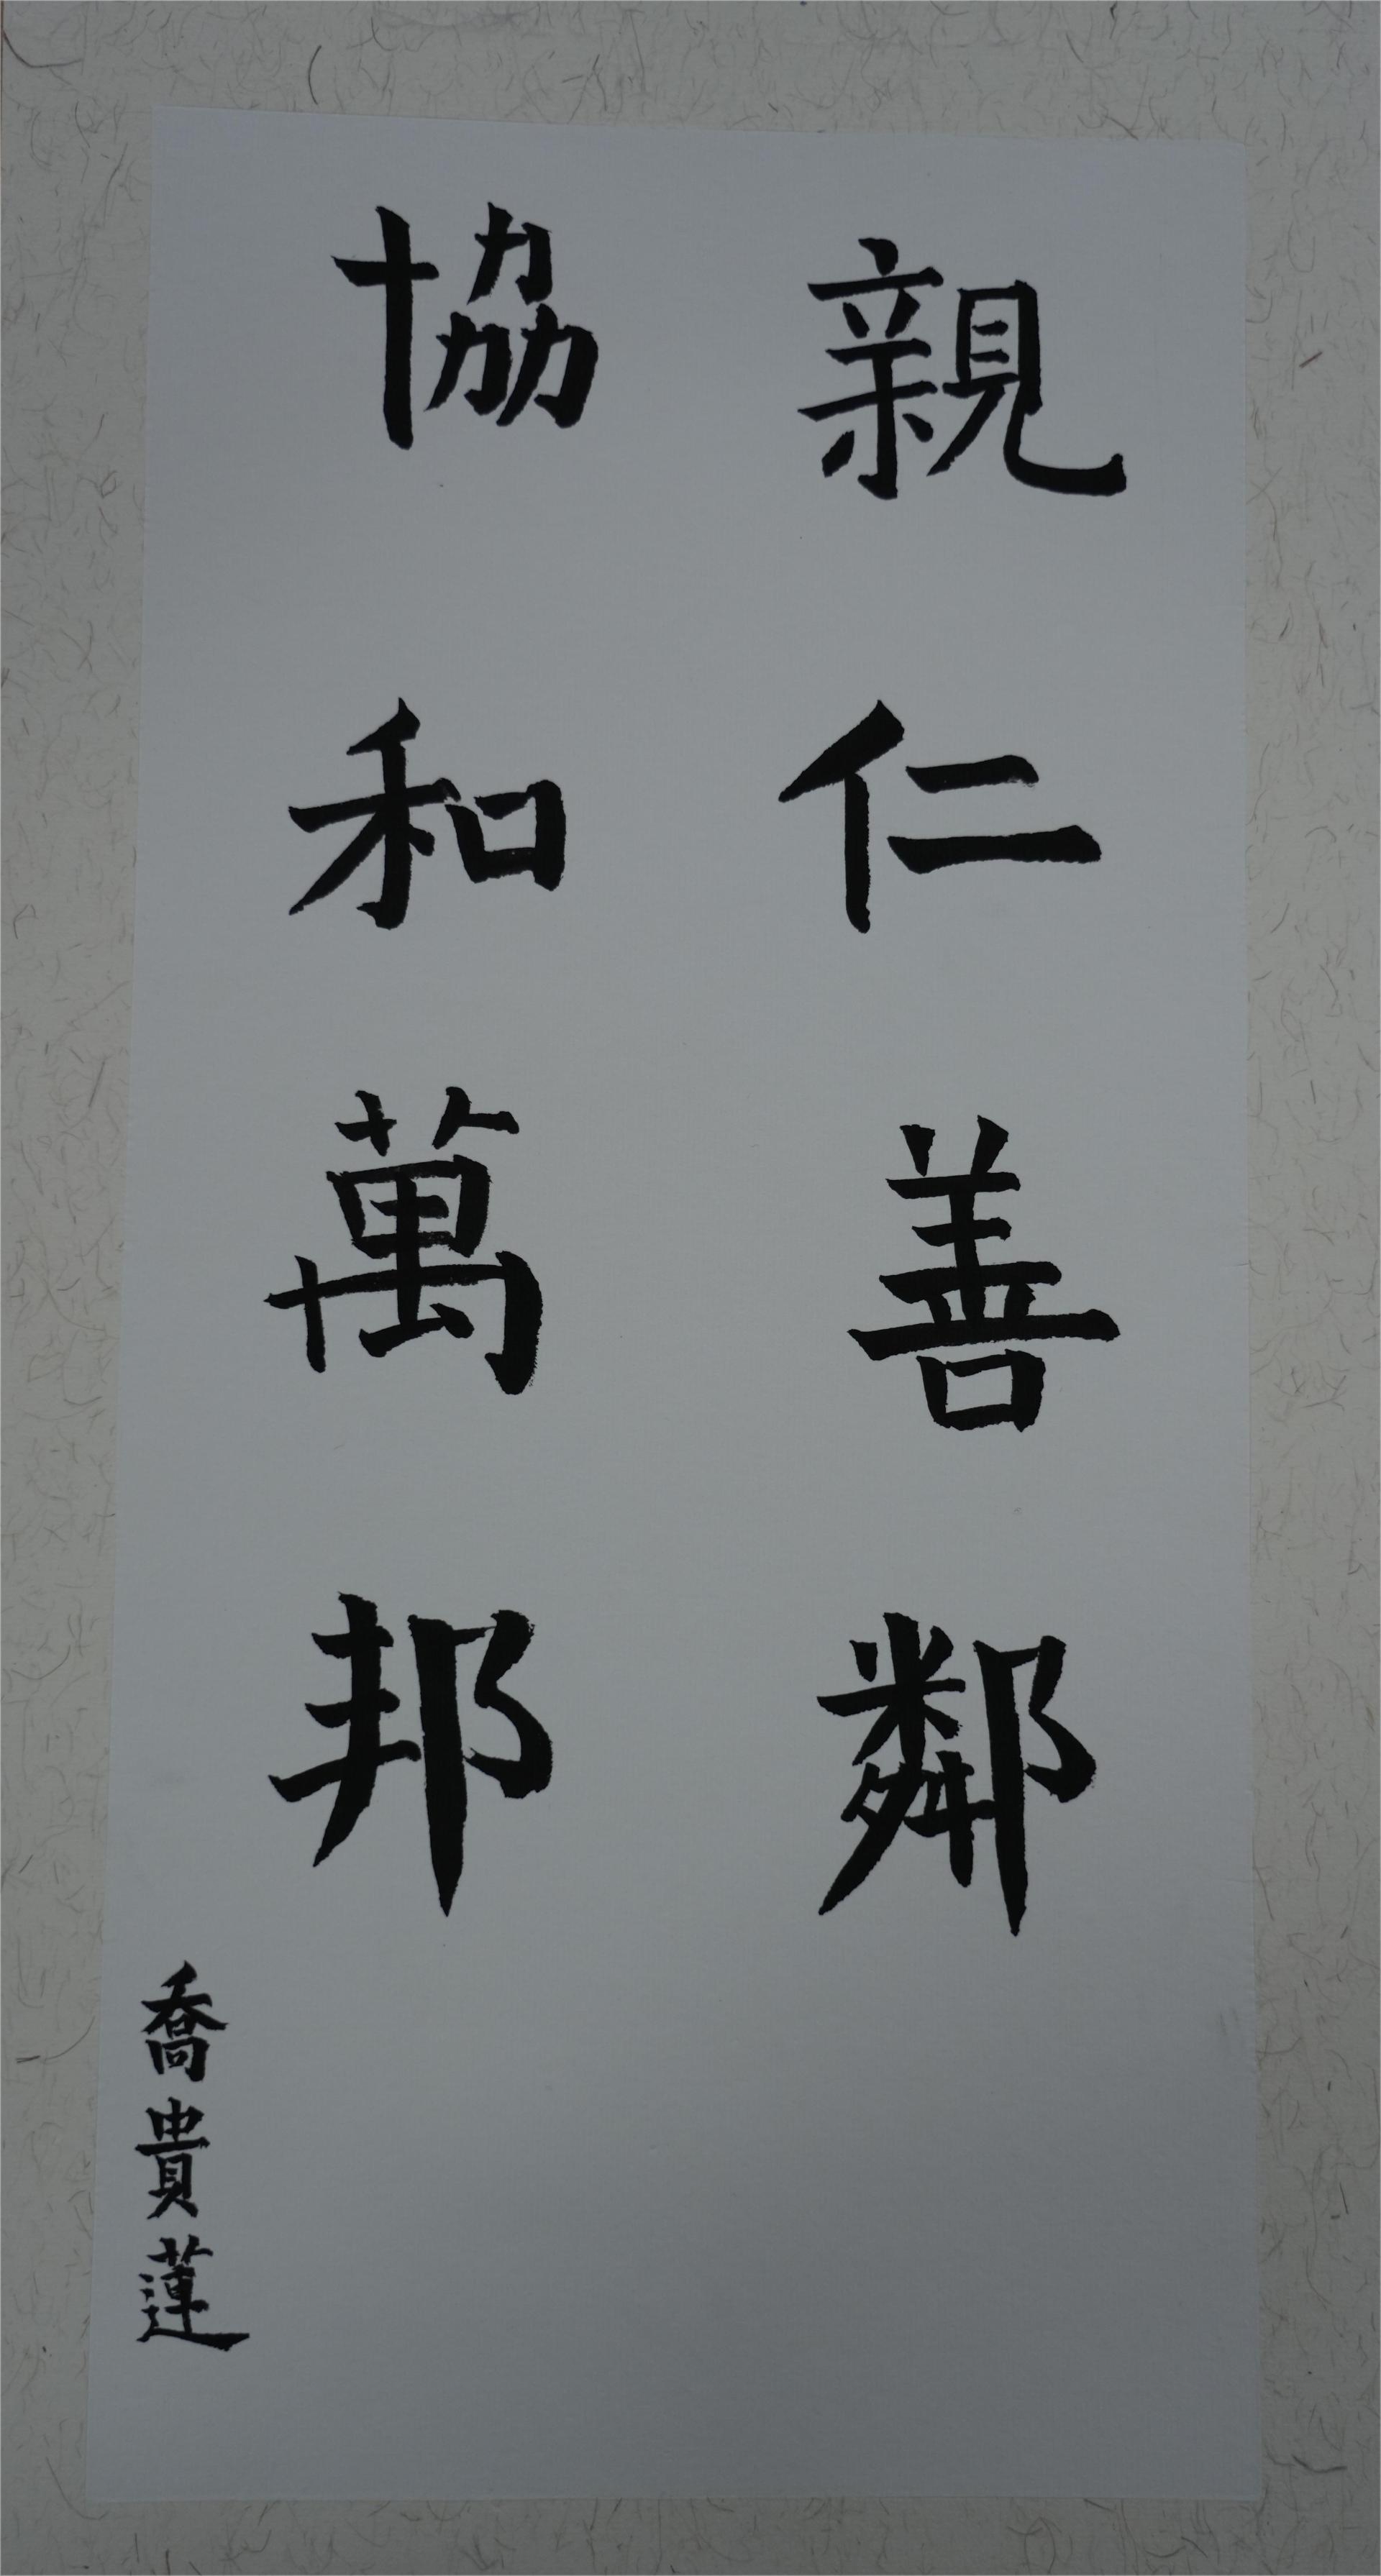 親仁善鄰
協和萬邦
喬貴蓮